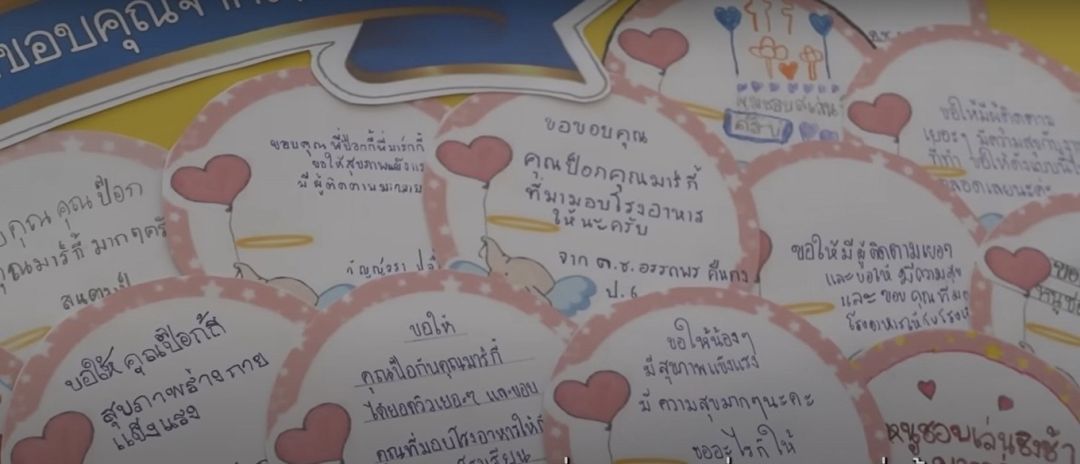 ขอบคุณจาก
ขอขอบคุณ
คุณป๊อกคุณมาร์กี้
ที่มามอบโรงอาหาร
ให้นะครับ
จาก ด.ช.
ป.6
ขอบคุณ พี่ป๊อกกี้พี่มาร์กี้
ขอให้สุขภาพแข็งแร
มีผู้ติดตาม
คุณ คุณป๊อก
คุณมาร์กี้ มากๆครั
ขอให้มีผู้ติดตาม
เยอะๆ มีความสุขกับ
ที่ทำ ขอให้ดังแบบนี้ไป
ตลอดเลยนะค่ะ
ขอให้มีผู้ติดตามเยอะๆ
และขอให้ มีความสุข
และ ขอบ คุณที่
ขอให้ คุณป๊อกกี้
สุขภาพร่างกาย
แข็งแรง
ขอให้
คุณป๊อกับคุณมาร์กี้
ได้ยอดวิวเยอะๆ และขอบ
คุณที่มอบโรงอาหารให้กั
ขอให้น้องๆ
มีสุขภาพแข็งแรง
มี ความสุขมากๆนะคะ
ขออะไรก็ให้
หนูชอบเล่นชิงช้า